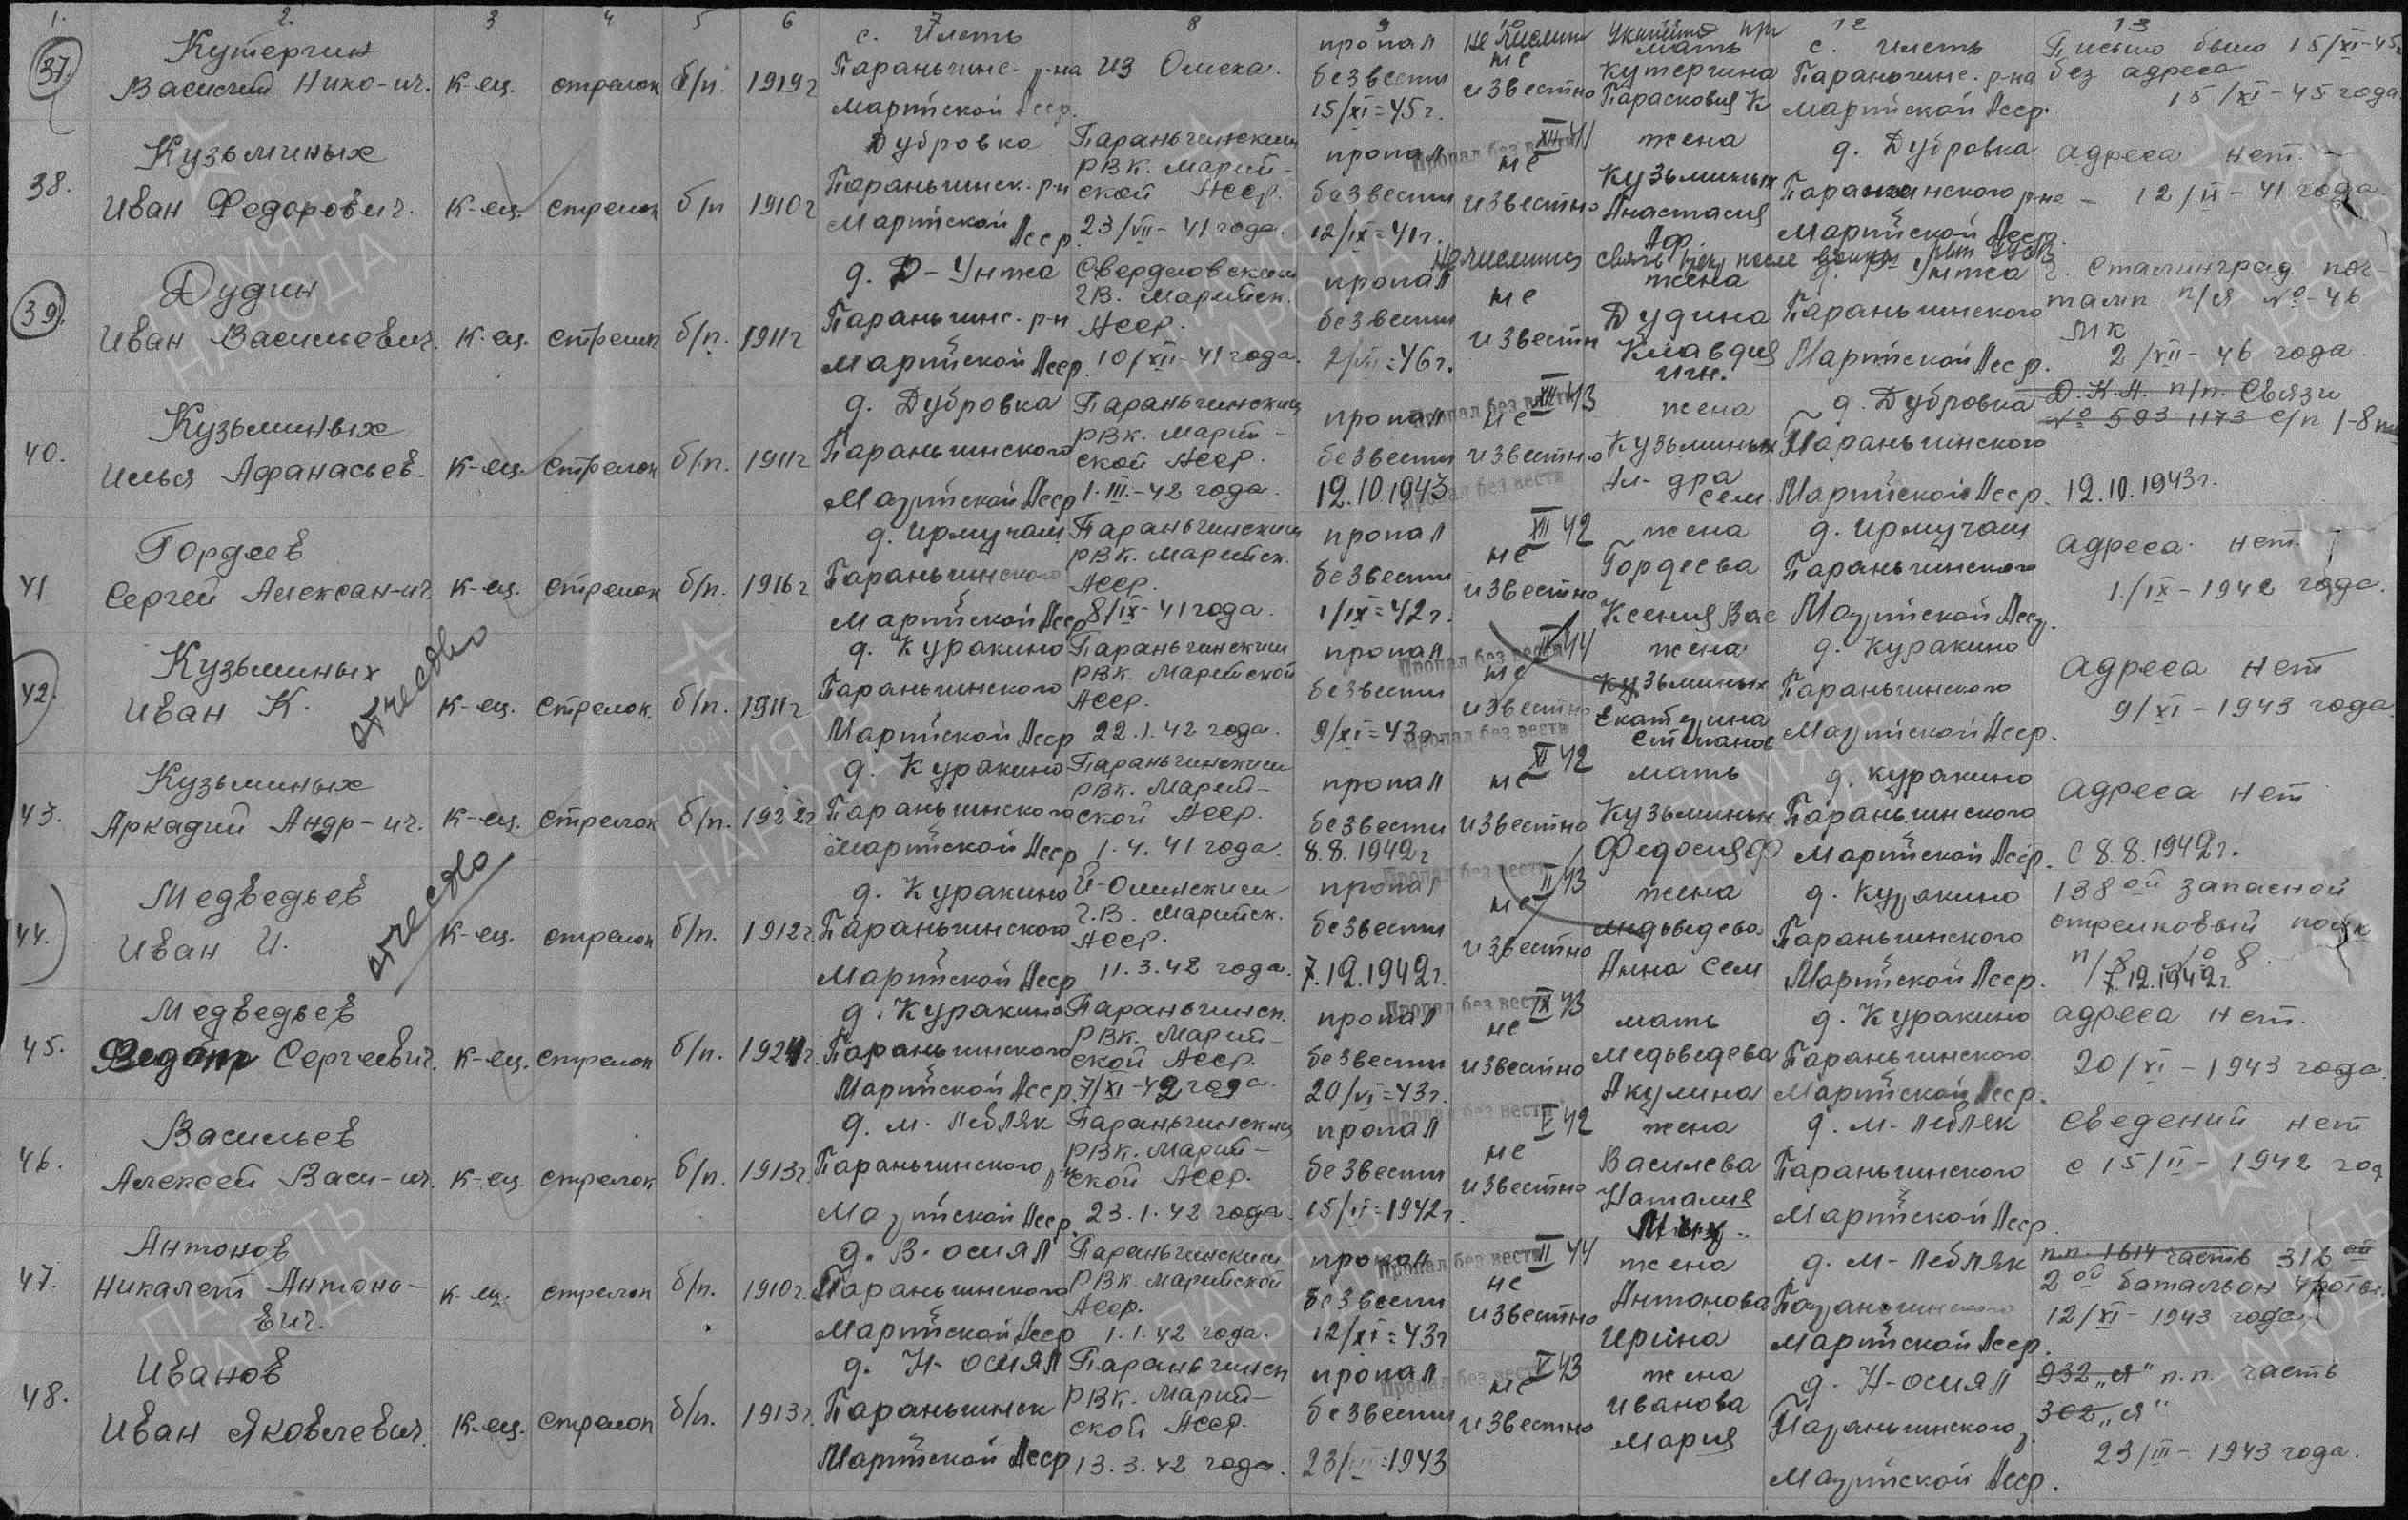 1. 2. 3 4 5 6 7 8 9 10 12 13
37. Кутергин Василий Нико-ич. к-ец. стрелок б/п. 1919г с. Илеть Параньгинс. р-на Марийской Асср. из Омска. пропал безвести 15/XI=45г. не числит не известно мать Кутергина Парасковия К с. Илеть Параньгинс. р-на Марийской Асср. Письмо было 15/XI-45 без адреса 15/XI-45 года
38. Кузьминых Иван Федорович. к-ец. стрелок б/п 1910г Дубровка Параньгинск. р-н Марийской Асср. Параньгинским РВК. Марий-ской Асср. 23/VII-41 года. пропал безвести 12/IX=41г. Пропал без вести XII 41 не известно жена Кузьминых Анастасия Аф. д. Дубровка Параньгинского р-на Марийской Асср. адреса нет. - 12/IX-41 года.
39. Дудин Иван Васильевич. к-ец. стрелок б/п. 1911г д. Д-Унжа Параньгинс. р-н Марийской Асср. Свердловским ГВ. Марийск. Асср. 10/XII-41 года. пропал безвести 2/VII=46г. не числится связь после войны не известн жена Дудина Клавдия Игн. Унжа Параньгинского Марийской Асср. г. Сталинград поч-тамп п/я №-46 МК 2/VII-46 года.
40. Кузьминых Илья Афанасьев. к-ец. стрелок б/п. 1911г д. Дубровка Параньгинского Марийской Асср Параньгинским РВК. Марий-ской Асср. 1.III.-42 года. пропал безвести 12.10.1943 Пропал без вести XII 43 не известно жена Кузьминых Ал-дра Сем. д. Дубровка Параньгинского Марийской Асср. Д.К.А. п/п. Связи № 593 1173 с/п 1-8 12.10.1943г.
41 Гордеев Сергей Алексан-ич. к-ец. стрелок б/п. 1916г д. Ирмучаш Параньгинского Марийской Асср Параньгинским РВК. Марийск. Асср. 8/IX-41 года. пропал безвести 1/IX=42г. Пропал без вести XII 42 не известно жена Гордеева Ксения Вас д. Ирмучаш Параньгинского Марийской Асср. адреса нет. 1/IX-1942 года.
42. Кузьминых Иван К. отчество к-ец. стрелок. б/п. 1911г д. Куракино Параньгинского Марийской Асср Параньгинским РВК. Марийской Асср. 22.1.42 года. пропал безвести 9/XI=43г. Пропал без вести 44 не известно жена Кузьминых Екатерина Степанов д. Куракино Параньгинского Марийской Асср. адреса нет 9/XI-1943 года.
43. Кузьминых Аркадий Андр-ич. к-ец. стрелок б/п. 1922г д. Куракино Параньгинского Марийской Асср Параньгинским РВК. Марий-ской Асср. 1.4.41 года. пропал безвести 8.8.1942г Пропал без вести XI 42 не известно мать Кузьминых Федосия Ф д. Куракино Параньгинского Марийской Асср. адреса нет с 8.8.1942г.
44. Медведьев Иван И. отчество к-ец. стрелок б/п. 1912г. д. Куракино Параньгинского Марийской Асср Й-Олинским Г.В. Марийск. Асср. 11.3.42 года. пропал безвести 7.12.1942г. Пропал без вести II 43 не известно жена Медьведева Анна Сем д. Куракино Параньгинского Марийской Асср. 138ой запасной стрелковый полк 7.12.1942г.
45. Медведьев Федот Сергеевич. к-ец. стрелок б/п. 1924г. д. Куракино Параньгинского Марийской Асср. Параньгинск. РВК. Марий-ской Асср. 7/XI-42 года. пропал безвести 20/VI=43г. Пропал без вести IX 43 не известно мать Медьведева Акулина д. Куракино Параньгинского Марийской Асср. адреса нет. 20/VI-1943 года.
46. Васильев Алексей Васи-ич. к-ец. стрелок б/п. 1913г. д. М. Лебляк Параньгинского р-н Марийской Асср. Параньгинским РВК. Марий-ской Асср. 23.1.42 года. пропал безвести 15/II=1942г. Пропал без вести V 42 не известно жена Василева Наталия Мих. д. М-Лебляк Параньгинского Марийской Асср. сведений нет с 15/II-1942 год
47. Антонов Никалет Антоно-вич. к-ец. стрелок б/п. 1910г. д. В-осиял Параньгинского Марийской Асср Параньгинским РВК. Марийской Асср. 1.1.42 года. пропал безвести 12/XI=43г Пропал без вести II 44 не известно жена Антонова Ирина д. М-Лебляк Параньгинского Марийской Асср. п.п. 1614 часть 316ой 2ой батальон 4 роты. 12/XI-1943 года.
48. Иванов Иван Яковлевич. к-ец. стрелок б/п. 1913г. д. Н-осиял Параньгинск Марийской Асср Параньгинск РВК. Марий-ской Асср. 13.3.42 года. пропал безвести 23/III=1943 Пропал без вести V 43 не известно жена Иванова Мария д. Н-осиял Параньгинского р. Марийской Асср. 932„я" п.п. часть 302„я" 23/III-1943 года.
ПАМЯТЬ НАРОДА